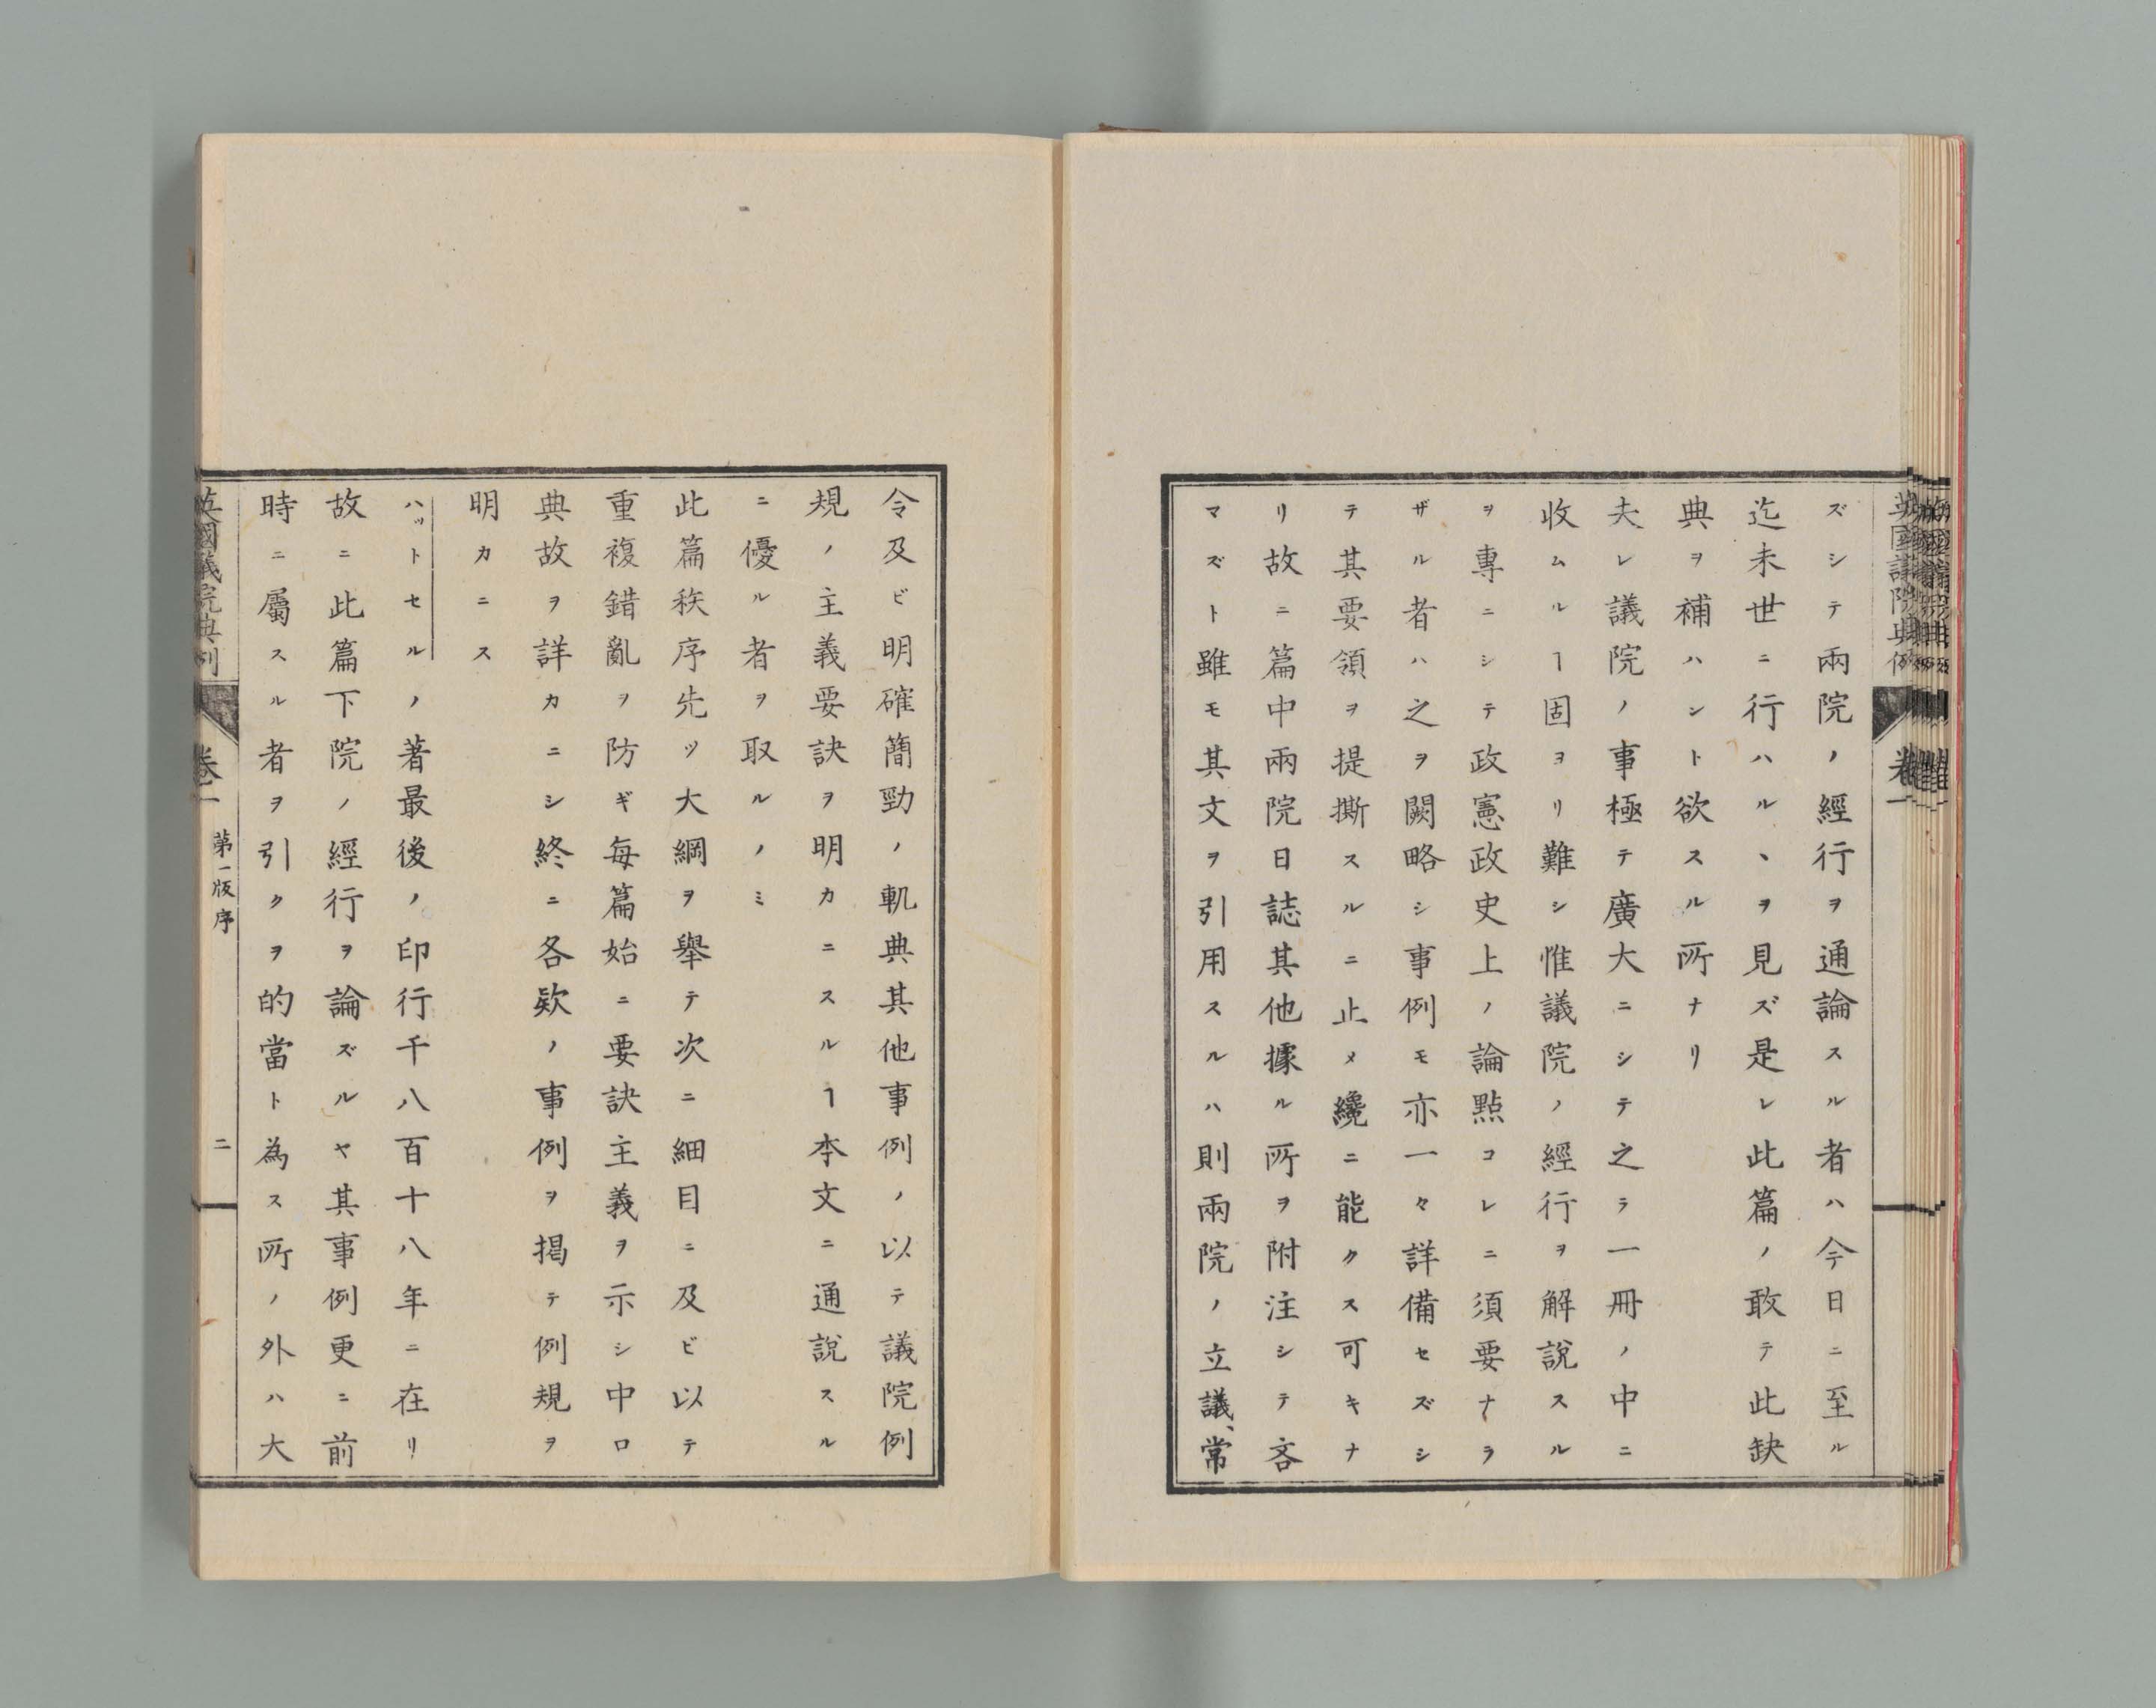 英國議院典例
卷一
ズシテ兩院ノ經行ヲ通論スル者ハ今日ニ至ル
迄未世ニ行ハルヽヲ見ズ是レ此篇ノ敢テ此缺
典ヲ補ハント欲スル所ナリ
夫レ議院ノ事極テ廣大ニシテ之ヲ一冊ノ中ニ
收ムルヿ固ヨリ難シ惟議院ノ經行ヲ解說スル
ヲ專ニシテ政憲政史上ノ論點コレニ須要ナラ
ザル者ハ之ヲ闕略シ事例モ亦一々詳備セズシ
テ其要領ヲ提撕スルニ止メ纔ニ能クス可キナ
リ故ニ篇中兩院日誌其他據ル所ヲ附注シテ吝
マズト雖モ其文ヲ引用スルハ則兩院ノ立議、常
令及ビ明確簡勁ノ軌典其他事例ノ以テ議院例
規ノ主義要訣ヲ明カニスルヿ本文ニ通說スル
ニ優ル者ヲ取ルノミ
此篇秩序先ツ大綱ヲ舉テ次ニ細目ニ及ビ以テ
重複錯亂ヲ防ギ每篇始ニ要訣主義ヲ示シ中ロ
典故ヲ詳カニシ終ニ各欵ノ事例ヲ掲テ例規ヲ
明カニス
ハットセルノ著最後ノ印行千八百十八年ニ在リ
故ニ此篇下院ノ經行ヲ論ズルヤ其事例更ニ前
時ニ屬スル者ヲ引クヲ的當ト為ス所ノ外ハ大
英國議院典例
卷一
第一版序
二